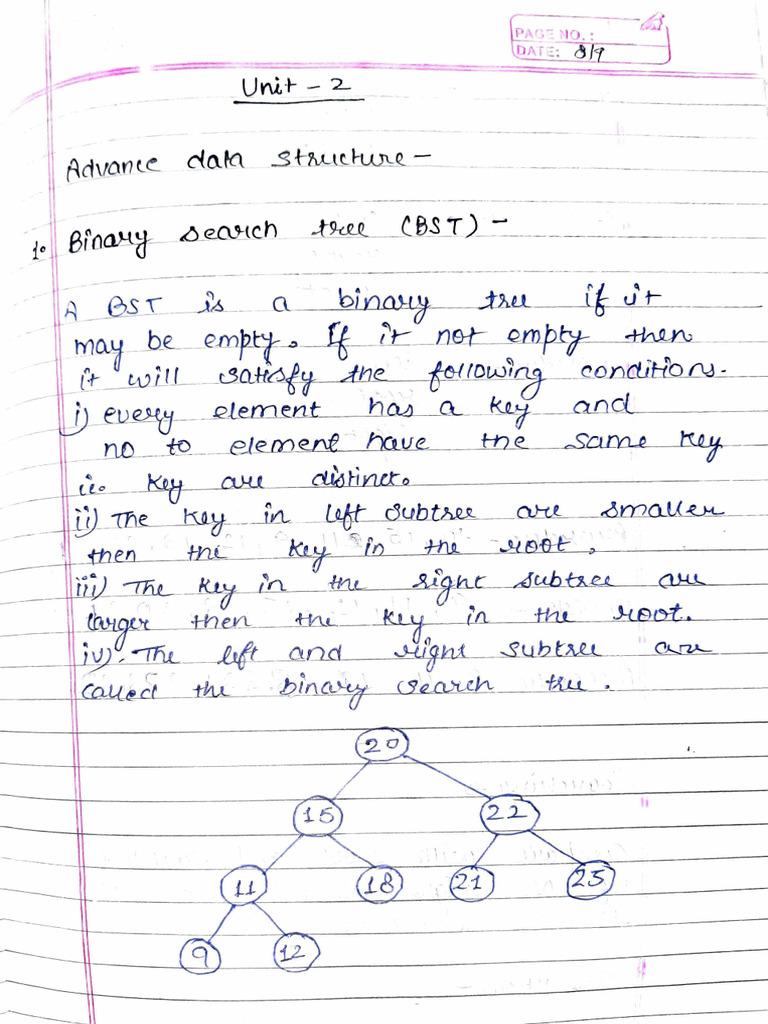 PAGE NO.:
DATE: 8/9
Unit - 2
Advance data structure -
1. Binary search tree (BST) -
A BST is a binary tree if it
may be empty. If it not empty then
it will satisfy the following conditions.
i) every element has a key and
no to element have the same key
i.e. key are distinct.
ii) The key in left subtree are smaller
then the key in the root.
iii) The key in the right subtree are
larger then the key in the root.
iv). The left and right subtree are
called the binary search tree.
20
15 22
11 18 21 25
9 12